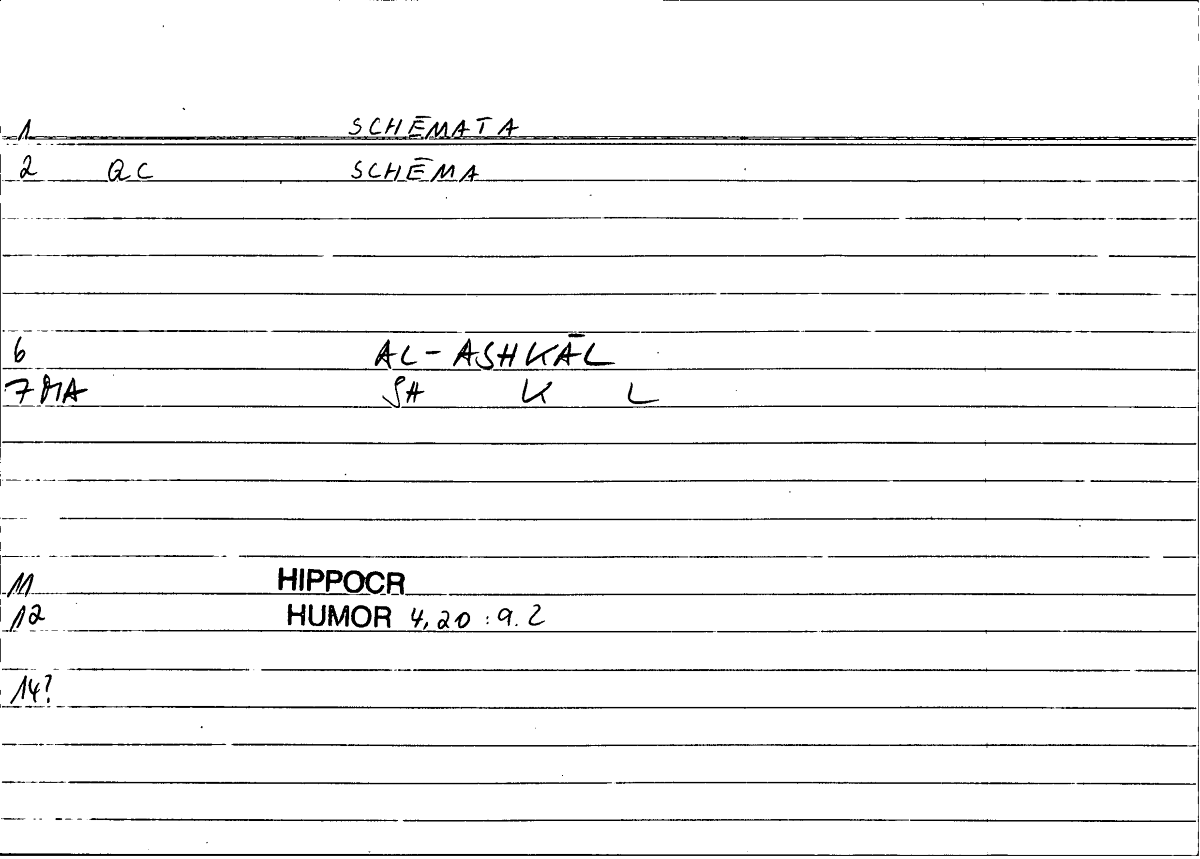 1 SCHĒMATA
2 QC SCHĒMA
6 AL-ASHKĀL
7 MA SH K L
11 HIPPOCR
12 HUMOR 4,20 : 9.2
14?